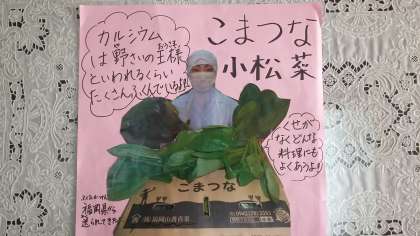 こまつな
小松菜
カルシウム
は野さいの王様
おうさま
といわれるくらい
たくさんふくんでいるよ!!
くせが
なくどんな
料理にも
よくあうよ!!
こまつな
福岡県から
送られてきた